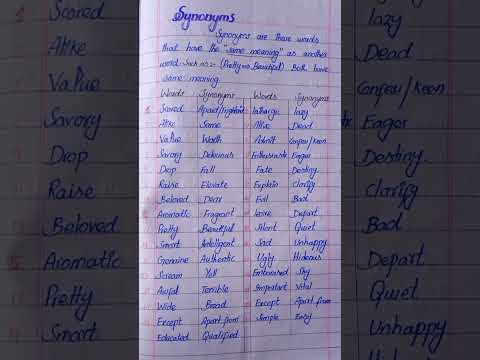 Synonyms
Synonyms are those words
that have the "same meaning" as another
word. Such as:- (Pretty = Beautiful) Both have
same meaning.
Words Synonyms Words Synonyms
Scared lathargic lazy
Alike Same Alive Dead
Value Worth
Savory Delecious Enthusiastic Eager
Drop Fall Fate Destiny
Raise Elevate Explain Clarify
Beloved Dear Evil Bad
Aromatic Fragrant Leave Depart
Pretty Beautiful Silent Quiet
Smart Inteligent Sad Unhappy
Genuine Authentic Ugly Hideous
Scream Yell Shy
Awful Terrible Important Vital
Wide Broad Except Apart from
Except Apart from Simple Easy
Educated Qualified
Scared
Alike
Value
Savory
Drop
Raise
Beloved
Aromatic
Pretty
Smart
lazy
Dead
Eager
Destiny
Clarify
Bad
Depart
Quiet
Unhappy